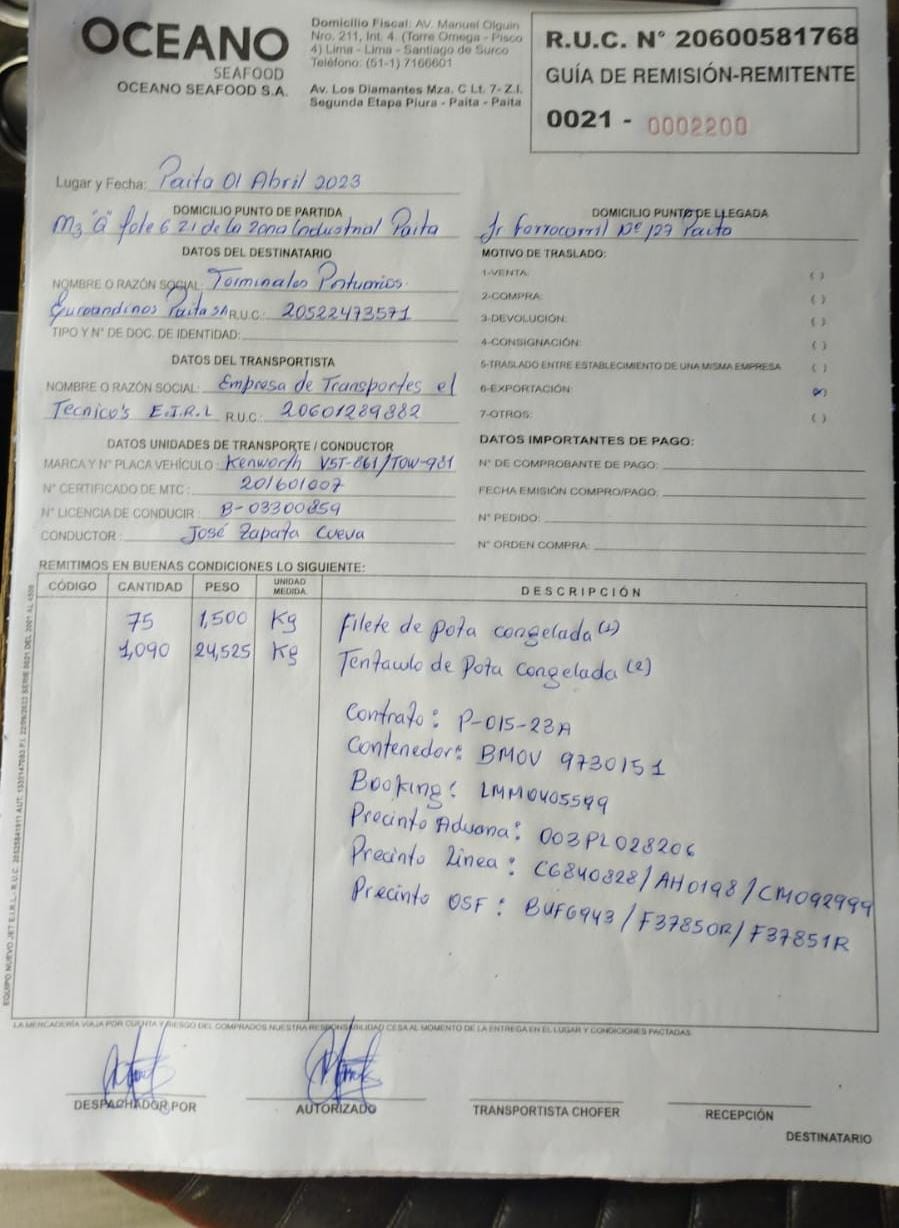 OCEANO
SEAFOOD
OCEANO SEAFOOD S.A.
Domicilio Fiscal: AV. Manuel Olguin
Nro. 211, Int. 4. (Torre Omega - Pisco
4) Lima - Lima - Santiago de Surco
Teléfono: (51-1) 7166601
Av. Los Diamantes Mza. C Lt. 7- Z.I.
Segunda Etapa Piura - Paita - Paita
R.U.C. N° 20600581768
GUÍA DE REMISIÓN-REMITENTE
0021 - 0002200
Lugar y Fecha: Paita 01 Abril 2023
DOMICILIO PUNTO DE PARTIDA
Mz "a" lote 6 ZI de la Zona Industrial Paita
DOMICILIO PUNTO DE LLEGADA
Jr Ferrocarril N° 127 Paita
DATOS DEL DESTINATARIO
NOMBRE O RAZÓN SOCIAL: Terminales Portuarios
Euroandinos Paita SA R.U.C: 20522473571
TIPO Y N° DE DOC. DE IDENTIDAD:
DATOS DEL TRANSPORTISTA
NOMBRE O RAZÓN SOCIAL: Empresa de Transportes el
Tecnico's E.I.R.L R.U.C: 20601289882
DATOS UNIDADES DE TRANSPORTE / CONDUCTOR
MARCA Y N° PLACA VEHÍCULO: Kenworth V5T-861/TOW-981
N° CERTIFICADO DE MTC: 201601007
N° LICENCIA DE CONDUCIR: B-03300859
CONDUCTOR: José Zapata Cueva
MOTIVO DE TRASLADO:
1-VENTA: ( )
2-COMPRA: ( )
3-DEVOLUCIÓN: ( )
4-CONSIGNACIÓN: ( )
5-TRASLADO ENTRE ESTABLECIMIENTO DE UNA MISMA EMPRESA ( )
6-EXPORTACIÓN: (x)
7-OTROS: ( )
DATOS IMPORTANTES DE PAGO:
N° DE COMPROBANTE DE PAGO:
FECHA EMISIÓN COMPRO/PAGO:
N° PEDIDO:
N° ORDEN COMPRA:
REMITIMOS EN BUENAS CONDICIONES LO SIGUIENTE:
CÓDIGO CANTIDAD PESO UNIDAD MEDIDA DESCRIPCIÓN
75 1,500 Kg Filete de Pota congelada (1)
1,090 24,525 Kg Tentaculo de Pota congelada (2)
Contrato: P-015-23A
Contenedor: BMOU 9730151
Booking: LMM0405599
Precinto Aduana: 003PL028206
Precinto Linea: CG840828/AH0198/CM092999
Precinto OSF: BUF6943/F37850R/F37851R
LA MERCADERÍA VIAJA POR CUENTA Y RIESGO DEL COMPRADOS NUESTRA RESPONSABILIDAD CESA AL MOMENTO DE LA ENTREGA EN EL LUGAR Y CONDICIONES PACTADAS.
DESPACHADOR POR
AUTORIZADO
TRANSPORTISTA CHOFER
RECEPCIÓN
DESTINATARIO